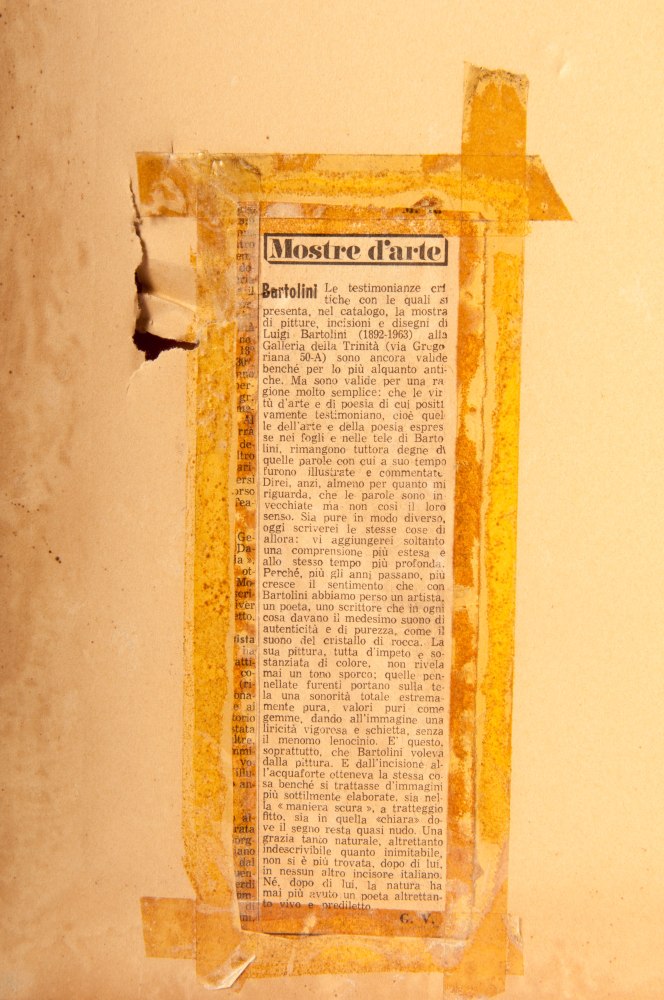 Mostre d'arte
Bartolini Le testimonianze cri
tiche con le quali si
presenta, nel catalogo, la mostra
di pitture, incisioni e disegni di
Luigi Bartolini (1892-1963) alla
Galleria della Trinità (via Grego
riana 50-A) sono ancora valide
benché per lo più alquanto anti-
che. Ma sono valide per una ra
gione molto semplice: che le vir
tù d'arte e di poesia di cui positi
vamente testimoniano, cioè quel
le dell'arte e della poesia espres
se nei fogli e nelle tele di Barto
lini, rimangono tuttora degne di
quelle parole con cui a suo tempo
furono illustrate e commentate.
Direi, anzi, almeno per quanto mi
riguarda, che le parole sono in
vecchiate ma non così il loro
senso. Sia pure in modo diverso,
oggi scriverei le stesse cose di
allora: vi aggiungerei soltanto
una comprensione più estesa e
allo stesso tempo più profonda.
Perché, più gli anni passano, più
cresce il sentimento che con
Bartolini abbiamo perso un artista,
un poeta, uno scrittore che in ogni
cosa davano il medesimo suono di
autenticità e di purezza, come il
suono del cristallo di rocca. La
sua pittura, tutta d'impeto e so-
stanziata di colore, non rivela
mai un tono sporco; quelle pen-
nellate furenti portano sulla te-
la una sonorità totale estrema-
mente pura, valori puri come
gemme, dando all'immagine una
liricità vigorosa e schietta, senza
il menomo lenocinio. E' questo,
soprattutto, che Bartolini voleva
dalla pittura. E dall'incisione al-
l'acquaforte otteneva la stessa co-
sa benché si trattasse d'immagini
più sottilmente elaborate, sia nel-
la « maniera scura », a tratteggio
fitto, sia in quella «chiara» do-
ve il segno resta quasi nudo. Una
grazia tanto naturale, altrettanto
indescrivibile quanto inimitabile,
non si è più trovata, dopo di lui,
in nessun altro incisore italiano.
Né, dopo di lui, la natura ha
mai più avuto un poeta altrettan-
to vivo e prediletto.
G. V.